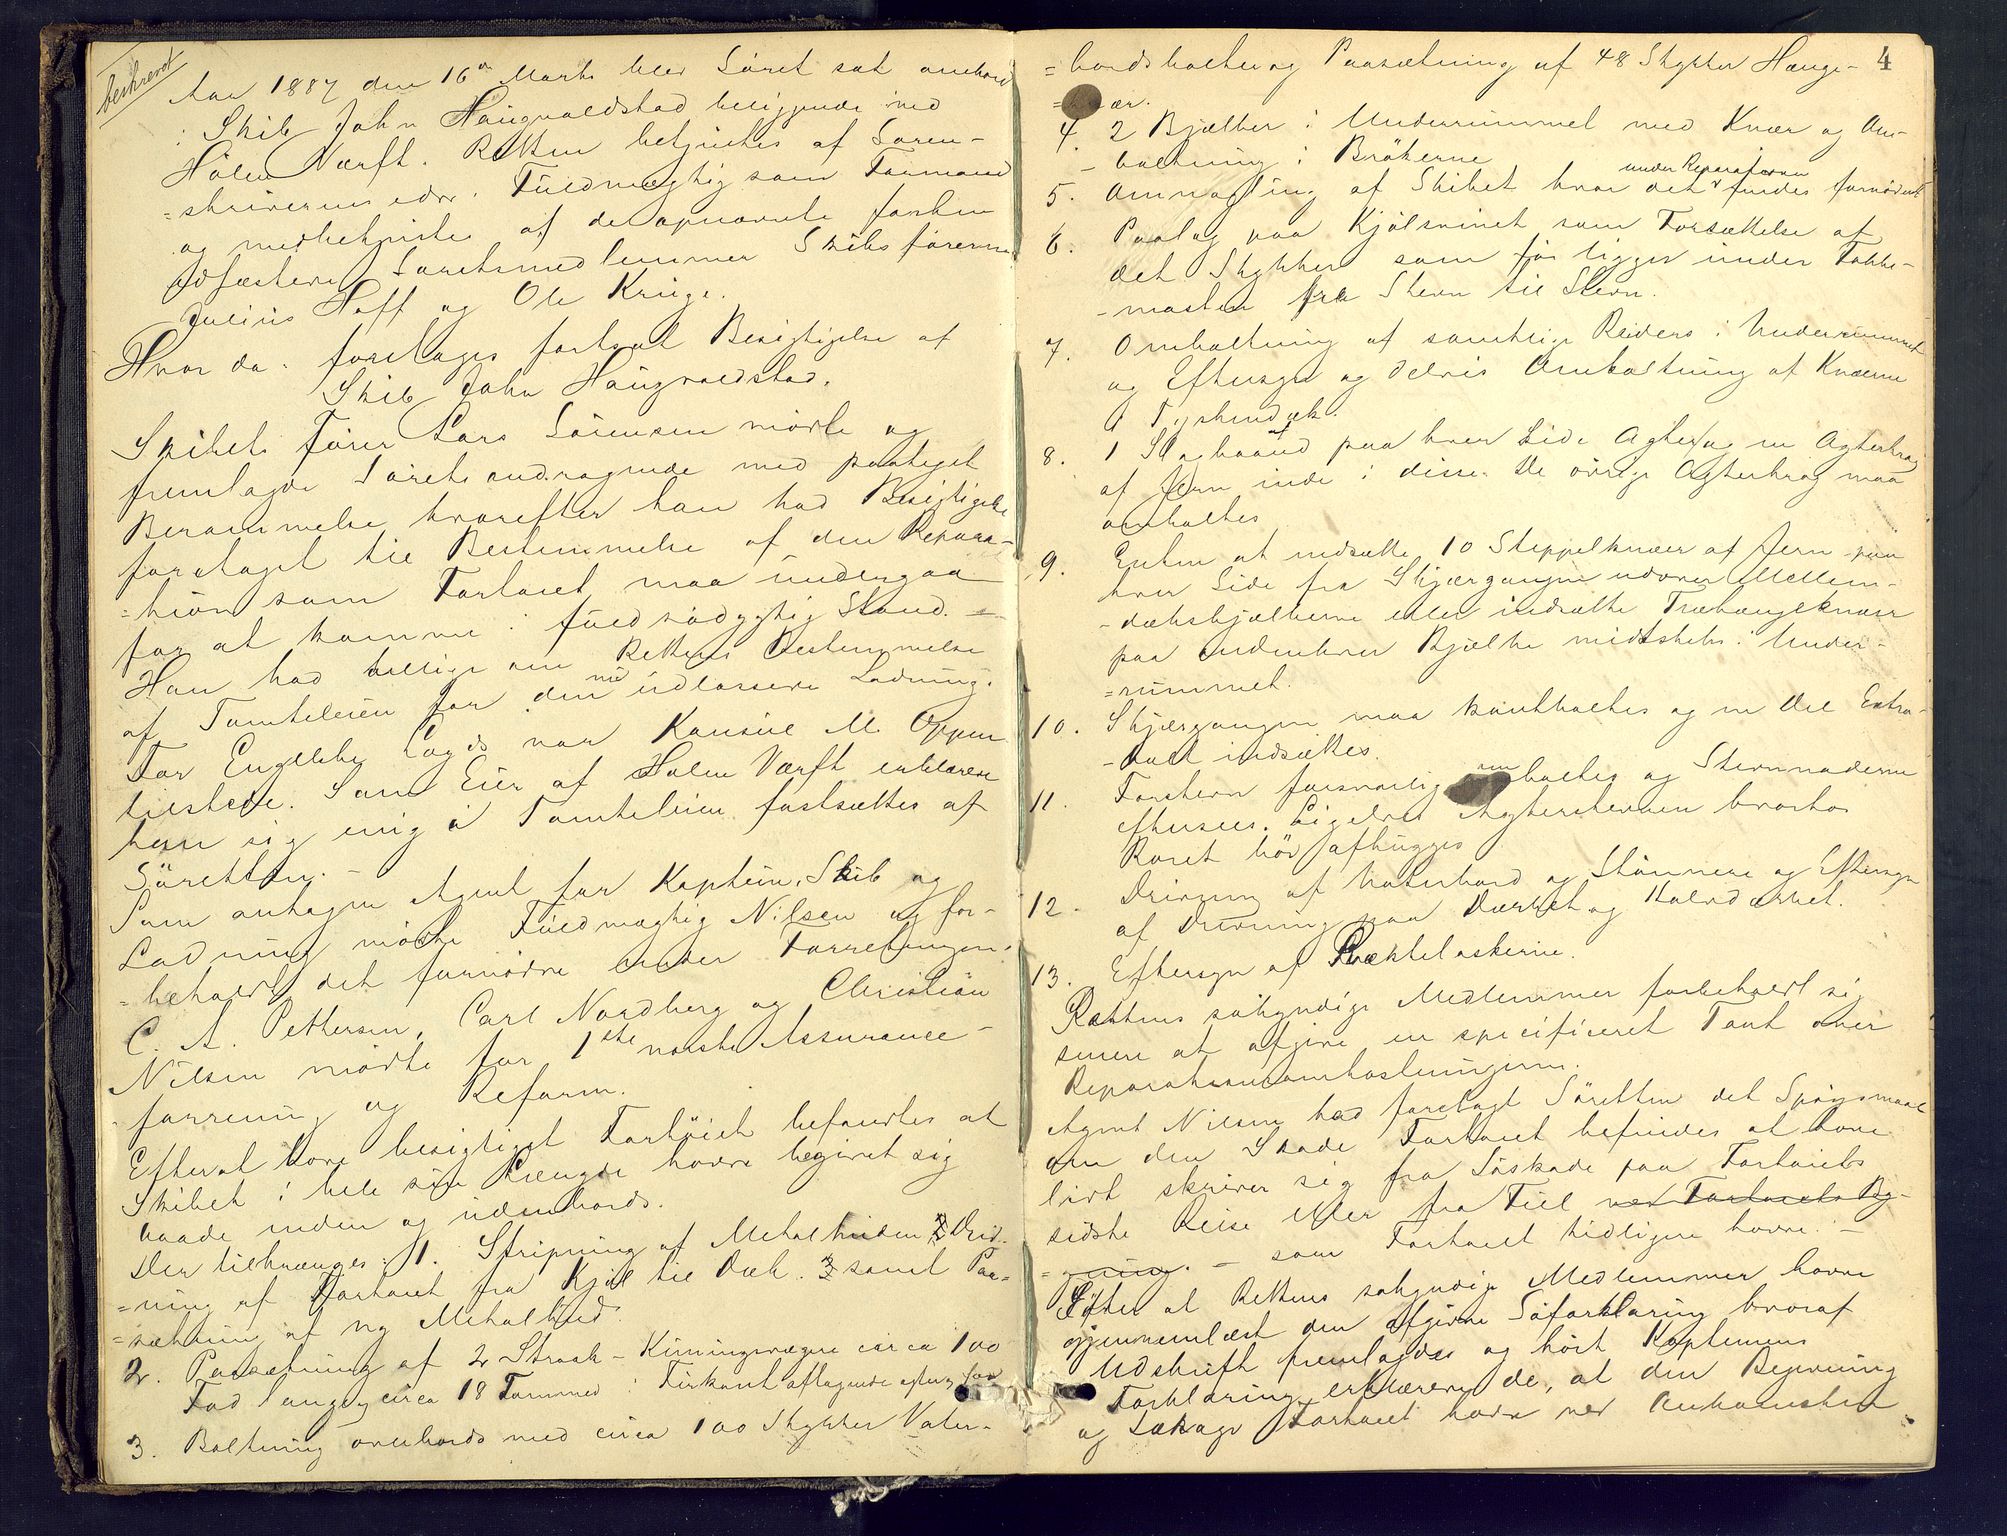 beskrevet
Aar 1887 den 16de Marts blev Söret sat ombord
i Skib John Haugvaldstad beliggende ved
Holen Værft. Retten betjentes af Soren-
=skriverens edsv. Fuldmægtig som Formand
og medbetjentes af de opnævnte forhen
edfæstede Söretsmedlemmer Skibsförerne
Julius Hoff og Ole Kruge.
Hvor da: foretages fortsat Besigtigelse af
Skib John Haugvaldstad.
Skibets Förer Lars Sörensen mödte og
fremlagde Sörets andragende med paateget
Berammelse hvorefter han bad Besigtigelse
foretaget til Bestemmelse af den Repara-
=tion som Fartöiet maa undergaa
for at komme i fuld södygtig Stand. –
Han bad tillige om Rettens Bestemmelse
af Tomteleien for den nu udlossede Ladning.
For Engelske Loyds var Konsul M. Oppen
tilstede. Som Eier af Holen Værft erklærede
han sig enig i Tomteleien fastsættes af
Söretten. –
Som antagen Agent for Kaptein, Skib og
Ladning mödte Fuldmægtig Nilsen og for-
=beholdt det fornödne under Forretningen.
C. A. Pettersen, Carl Nordberg og Christian
Nilsen mödte for 1ste norske Assurance-
forening og Reform.
Efterat have besigtiget Fartöiet befandtes at
Skibet i hele sin Længde havde begivet sig
baade inden og udenbords.
Der tiltrænges: 1. Stripning af Metalhuden 2 Driv-
=ning af Fartöiet fra Kjöl til Dæk. 3 samt Paa-
=sætning af ny Metalhud.
2. Paasætning af 2 Strook – Kimingsvægere circa 100
Fod lange, circa 18 Tommer i Firkant aftagende efter
3. Boltning ombords med circa 100 Stykker Vater-
4
=bordsbolte og Paasætning af 48 Stykker Hænge-
=knær.
4. 2 Bjælker i Underrummet med Knær og Om-
-boltning i Bröterne
under Reparationen
5. Omnagling af Skibet hvor det findes fornödent
6. Paalag paa Kjölsvinet som Forsættelse af
det Stykke som för ligger under Fokke-
-masten fra Stevn til Stevn.
7. Omboltning af samtlige Reiders i Underrummet
og Eftersyn og delvis Omboltning af Knæerne
i Tyskendæk.
8. 1 Slagbaand paa hver Side Agter og en Agterkrag
af Jern inde i disse. De övrige Agterkrag maa
omboltes
9. Enten at nedsætte 10 Stippelknær af Jern paa
hver Side fra Skjærgangen udover Mellem-
-dæksbjælkerne eller indsætte Træhængeknær
paa andenhver Bjælke midtskibs i Under-
=rummet.
10. Skjærgangen maa kantboltes og en Del Extra-
-bolt indsættes.
11. Forstevn forsvarlig omboltes og Stevnnaderne
eftersees. Ligeledes Agterstevnen hvorhos
Roret bör afhugges
12. Drivning af Vaterbord og Stönnere og Eftersyn
af Drivning paa Dækket og Halvdækket.
13. Eftersyn af Rækkelaskerne.
Rettens sökyndige Medlemmer forbeholdt sig
senere at afgive en specificeret Taxt over
Reparationsomkostningerne.
Agent Nilsen bad forelagt Söretten det Spörgsmaal
om den Skade Fartöiet befindes at have
lidt skriver sig fra Söskade paa Fartöiets
sidste Reise eller fra Feil ved Fartöiets Byg-
=ning. – som Fartöiet tidligere havde. –
Efter at Rettens sökyndige Medlemmer havde
gjennemlæst den afgivne Söforklaring hvoraf
Udskrift fremlagdes og hört Kapteinens
Forklaring erklærede de, at den Begivning
og Lækage Fartöiet havde ved Ankomsten